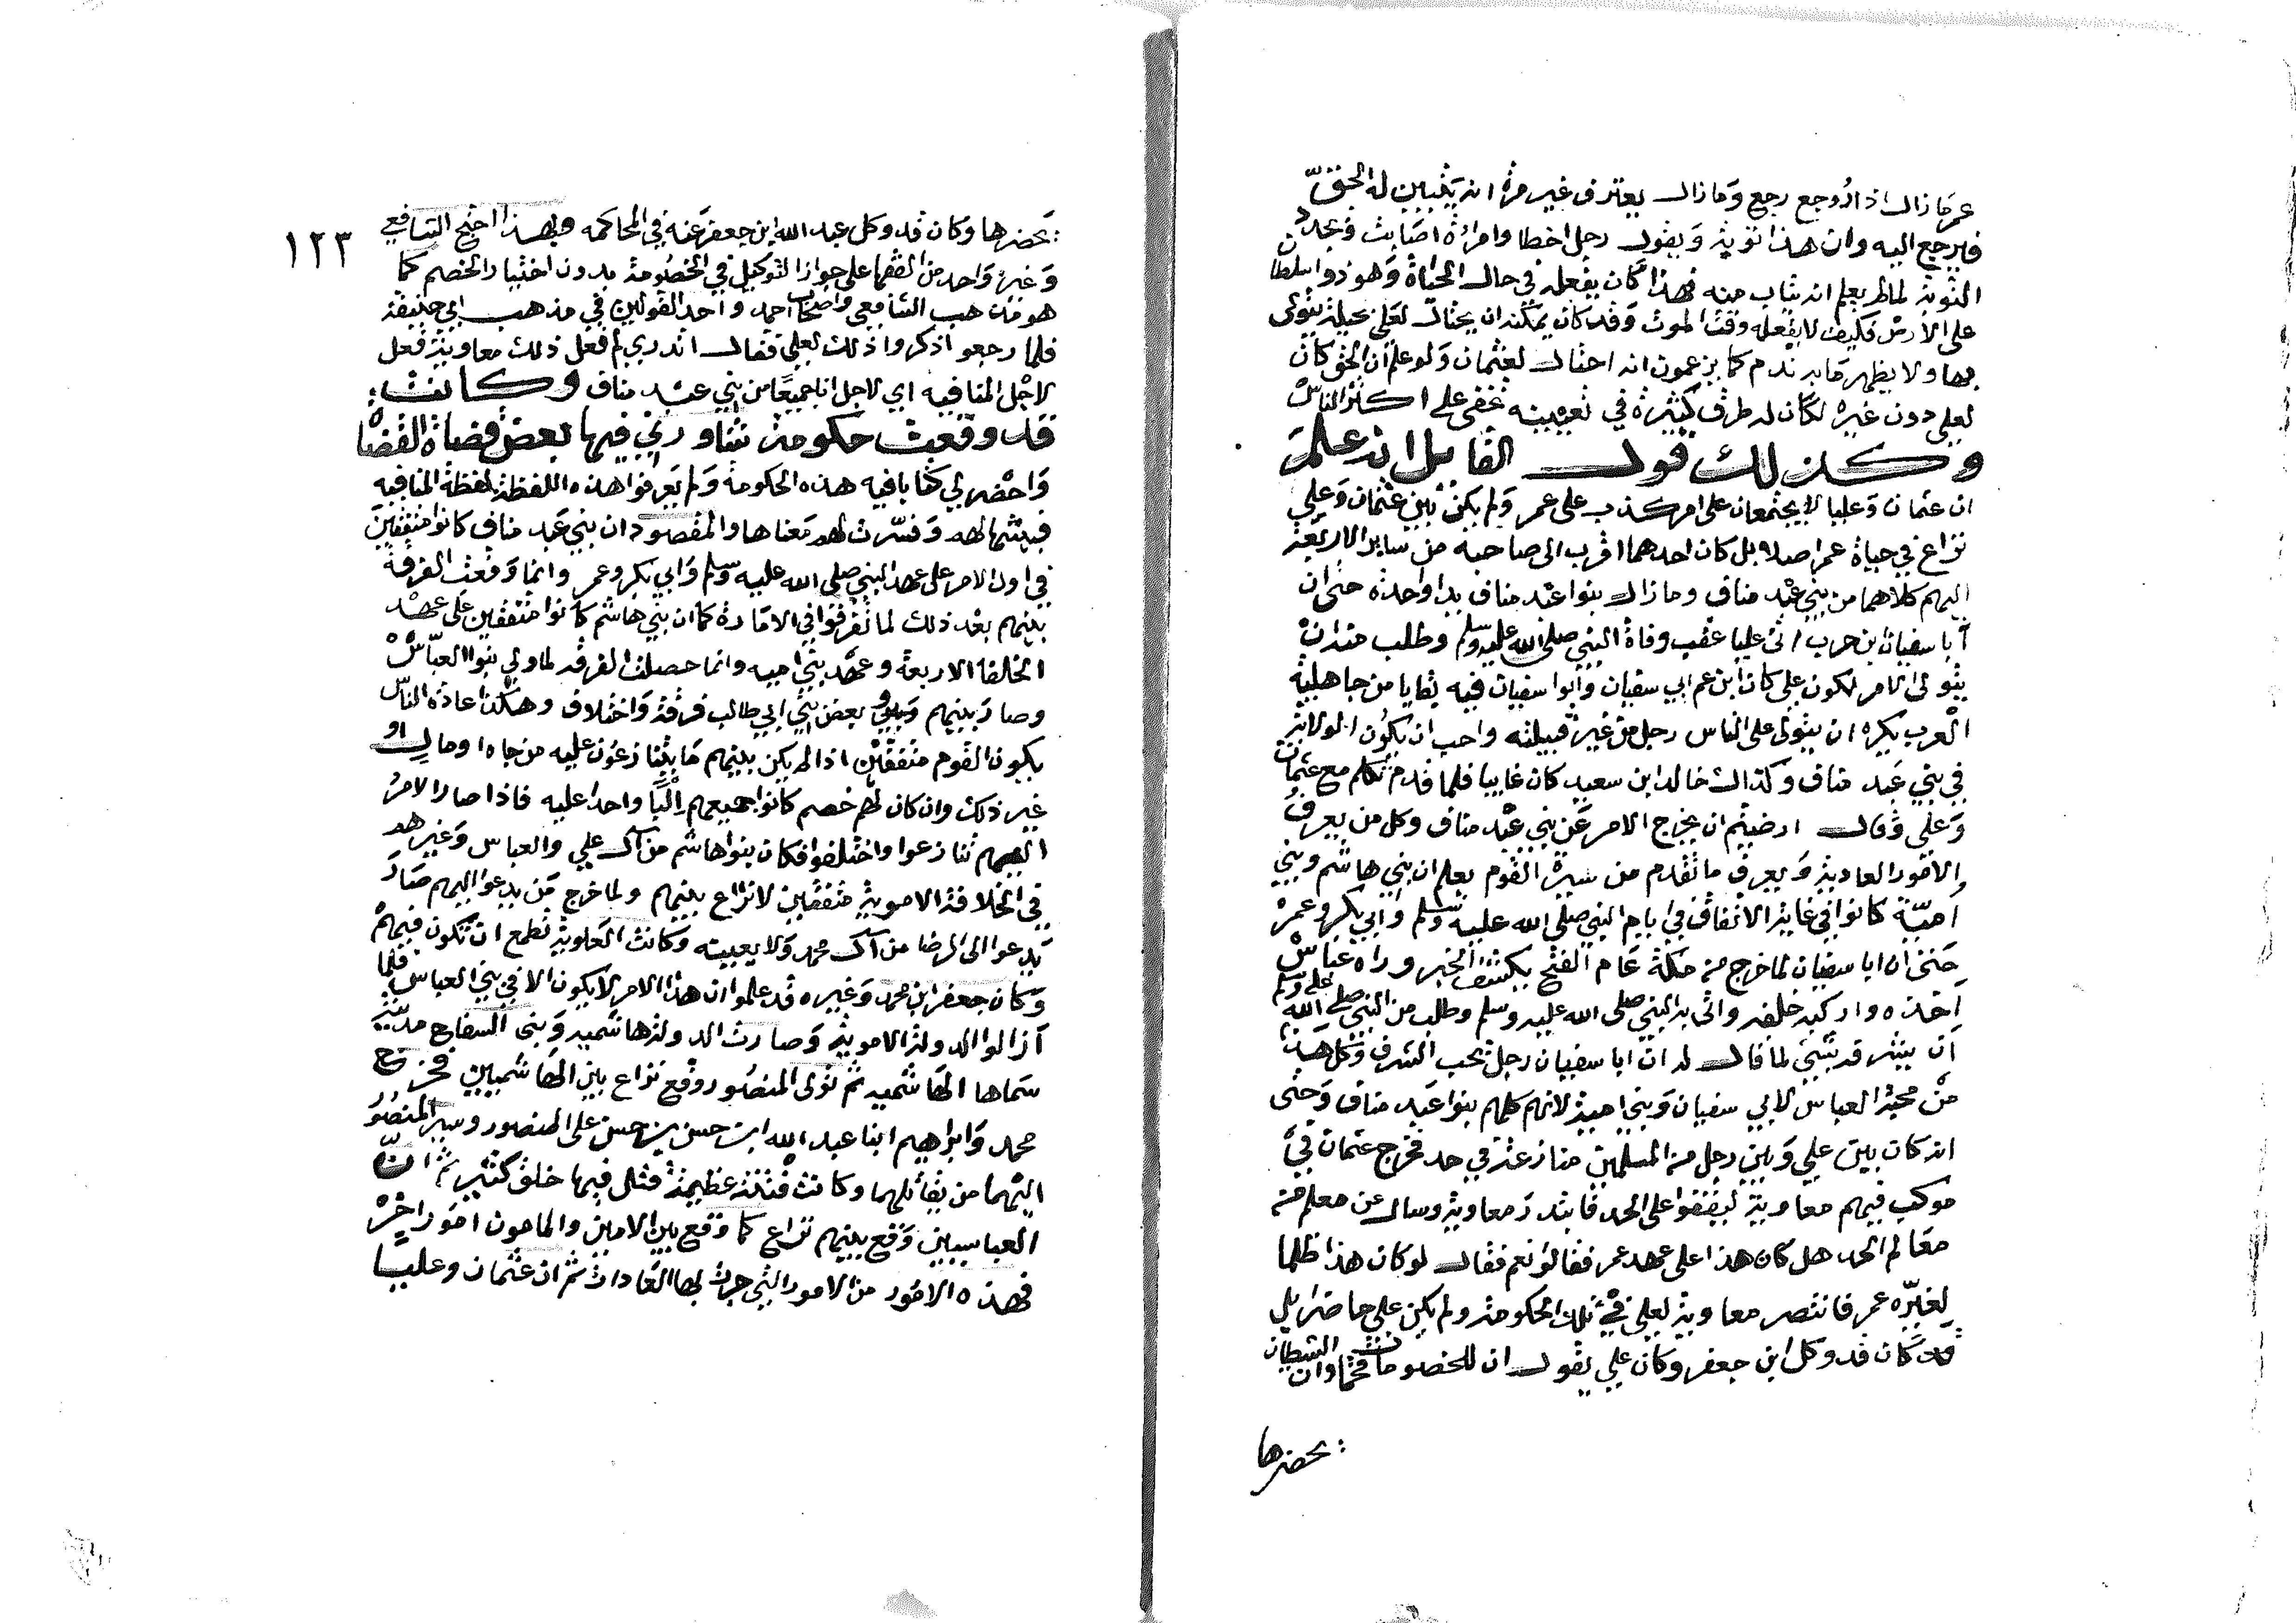 عمر مازال اذا روجع رجع وما زال يعترف غير مرة انه يتبين له الحق
فيرجع اليه وان هذا توبة ويقول رجل اخطا وامراة اصابت ويجدد
التوبة لما لم يعلم انه يتاب منه فهذا كان يفعله في حال الحياة وهو ذوا سلطان
على الارض فكيف لا يفعله وقت الموت وقد كان يمكنه ان يحتال لعلي بحيلة يتولى
بها ولا يظهر ما به ندم كما يزعمون انه احتال لعثمان ولو علم ان الحق كان
لعلي دون غيره لكان له طرق كثيرة في تعيينه تخفى على اكثر الناس
وكذلك قول القايل انه علم
ان عثمان وعليا لا يجتمعان على امر كذب على عمر ولم يكن بين عثمان وعلي
نزاع في حياة عمر اصلا بل كان احدهما اقرب الى صاحبه من ساير الاربعة
اليهم كلاهما من بني عبد مناف وما زال بنوا عبد مناف يدا واحدة حتى ان
ابا سفيان ابن حرب اتى عليا عقب وفاة النبي صلى الله عليه وسلم وطلب منه ان
يتولى الامر لكون علي كان ابن عم ابي سفيان وابوا سفيان فيه بقايا من جاهلية
العرب يكره ان يتولى على الناس رجل من غير قبيلته واحب ان يكون الولاية
في بني عبد مناف وكذلك خالد ابن سعيد كان غايبا فلما قدم تكلم مع عثمان
وعلي وقال ارضيتم ان يخرج الامر عن بني عبد مناف وكل من يعرف
الامور العادية ويعرف ما تقدم من سيرة القوم يعلم ان بني هاشم وبني
امية كانوا في غاية الاتفاق في ايام النبي صلى الله عليه وسلم وابي بكر وعمر
حتى ان ابا سفيان لما خرج من مكة عام الفتح يكشف الخبر وراه عباس
اخذه واركبه خلفه واتى به النبي صلى الله عليه وسلم وطلب من النبي صلى الله عليه وسلم
ان يشرفه بشي لما قال له ان ابا سفيان رجل يحب الشرف وكل هذا
من محبة العباس لابي سفيان وبني امية لانهم كلهم بنوا عبد مناف وحتى
انه كان بين علي وبين رجل من المسلمين منازعة في حد فخرج عثمان في
موكب فيهم معاوية ليقفوا على الحد فابتدر معاوية وسال عن معلم من
معالم الحد هل كان هذا على عهد عمر فقالوا نعم فقال لو كان هذا ظلما
لغيره عمر فانتصر معاوية لعلي في تلك الحكومة ولم يكن علي حاضرا بل
قد كان قد وكل ابن جعفر وكان علي يقول ان للخصومات قحما وان الشيطان
يحضرها
١٢٣
يحضرها وكان قد وكل عبد الله ابن جعفر عنه في المحاكمه وبهذا احتج الشافعي
وغير واحد من الفقها على جواز التوكيل في الخصومة بدون اختيار الخصم كما
هو مذهب الشافعي واصحاب احمد واحد القولين في مذهب ابي حنيفة
فلما رجعو اذكروا ذلك لعلي فقال اتدري لم فعل ذلك معاوية فعل
لاجل المنافيه اي لاجل انا جميعا من بني عبد مناف وكانت
قد وقعت حكومة شاورني فيها بعض قضاة القضا
واحضر لي كتابا فيه هذه الحكومة ولم يعرفوا هذه اللفظة لفظة المنافيه
فبينتها لهم وفسرت لهم معناها والمقصود ان بني عبد مناف كانوا متفقين
في اول الامر على عهد النبي صلى الله عليه وسلم وابي بكر وعمر وانما وقعت الفرقة
بينهم بعد ذلك لما تفرقوا في الامارة كما ان بني هاشم كانوا متفقين على عهد
الخلفا الاربعة وعهد بني اميه وانما حصلت الفرقه لما ولي بنوا العباس
وصار بينهم وبين بعض بني ابي طالب فرقة واختلاف وهكذا عادة الناس
يكون القوم متفقين اذا لم يكن بينهم ما يتنازعون عليه من جاه او مال او
غير ذلك وان كان لهم خصم كانوا جميعهم البا واحدا عليه فاذا صار الامر
اليهم تنازعوا واختلفوا فكان بنوا هاشم من آل علي والعباس وغيرهم
في الخلافة الاموية متفقين لا نزاع بينهم ولما خرج من يدعوا اليهم صار
يدعوا الى الرضا من آل محمد ولا يعينه وكانت العلوية تطمع ان تكون فيهم
وكان جعفر ابن محمد وغيره قد علموا ان هذا الامر لا يكون الا في بني العباس فلما
ازالوا الدولة الاموية وصارت الدولة هاشميه وبنى السفاح مدينة
سماها الهاشميه ثم تولى المنصور وقع نزاع بين الهاشميين فخرج
محمد وابراهيم ابنا عبد الله ابن حسن بن حسن على المنصور وسير المنصور
اليهما من يقاتلهما وكانت فتنة عظيمة قتل فيها خلق كثير ثم ان
العباسيين وقع بينهم نزاع كما وقع بين الامين والمامون امور اخر
فهذه الامور من الامور التي جرت بها العادات ثم ان عثمان وعليا